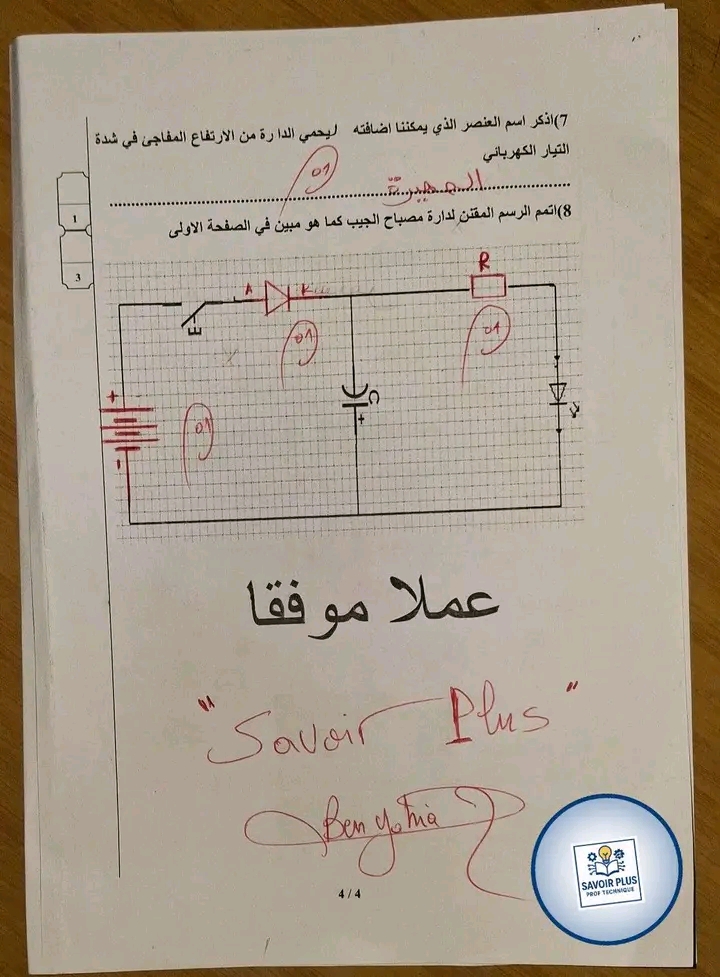 7)اذكر اسم العنصر الذي يمكننا اضافته ليحمي الدارة من الارتفاع المفاجئ في شدة
التيار الكهربائي
01
المصهرة
1
8)اتمم الرسم المقنن لدارة مصباح الجيب كما هو مبين في الصفحة الاولى
3
R
A K
E
01
01
+
C
+
01
-
عملا موفقا
"Savoir Plus"
Ben yahia
SAVOIR PLUS
PROF TECHNIQUE
4 / 4